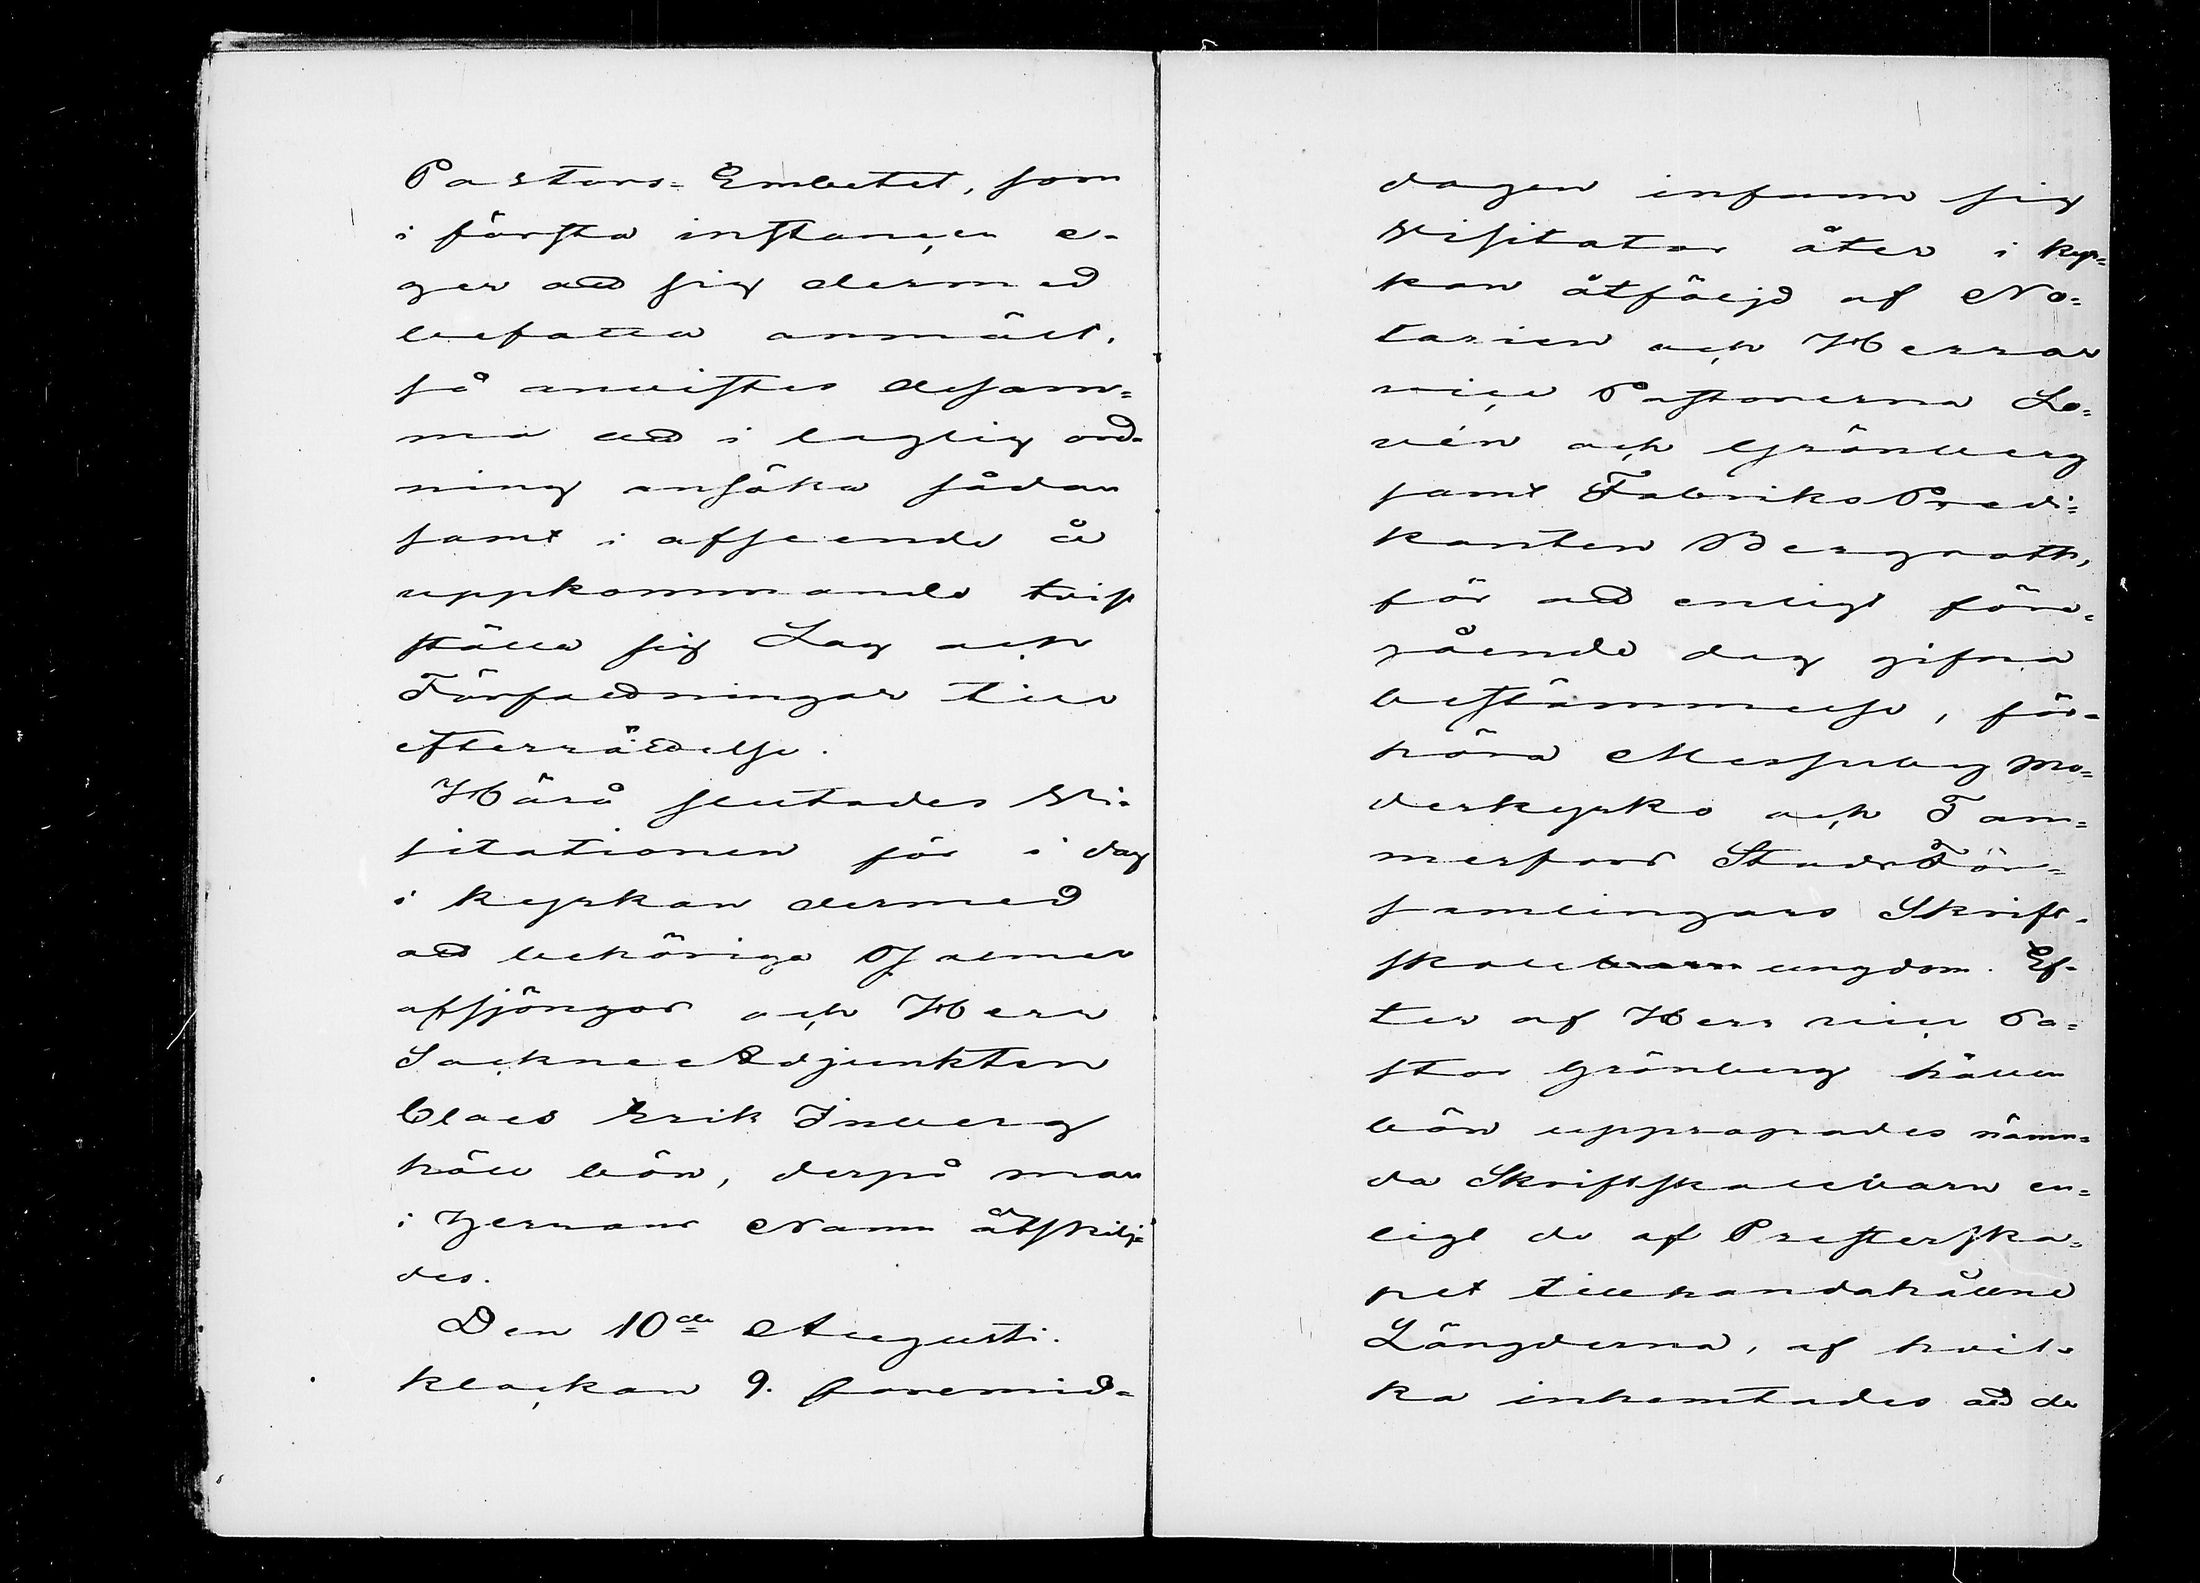 Pastors-Embetet, som
i första instancen e-
ger att sig dermed
befatta anmält,
så anvistes desam-
ma att i laglig ord-
ning ansöka sådan
samt i afseende å
uppkommande tvist
ställa sig Lag och
Författningar till
efterrättelse.
Härå slutades Vi-
sitationen för i dag
i kyrkan dermed
att behöriga Psalmer
afsjöngos och Herr
Sockne Adjunkten
Claes Erik Inberg
höll bön, derpå man
i Herrans Namn åtskilj-
des.
Den 10de Augusti.
klockan 9. foremid-
dagen infann sig
Visitator åter i kyr-
kan åtföljd af No-
tarien och Herrar
vice Pastorerna Lo-
vén och Grönberg
samt Fabriks Predi-
kanten Bergroth,
för att enligt före-
gående dag gifna
bestämmelse, för-
höra Messuby Mo-
derkyrko och Tam-
merfors Stads För-
samlingars Skrift-
skole ungdom. Ef-
ter af Herr vice Pa-
stor Grönberg hållen
bön uppropades nämn-
da Skriftskolebarn en-
ligt de af Presterska-
pet tillhandahållne
Längderna, af hvil-
ka inhemtades att de